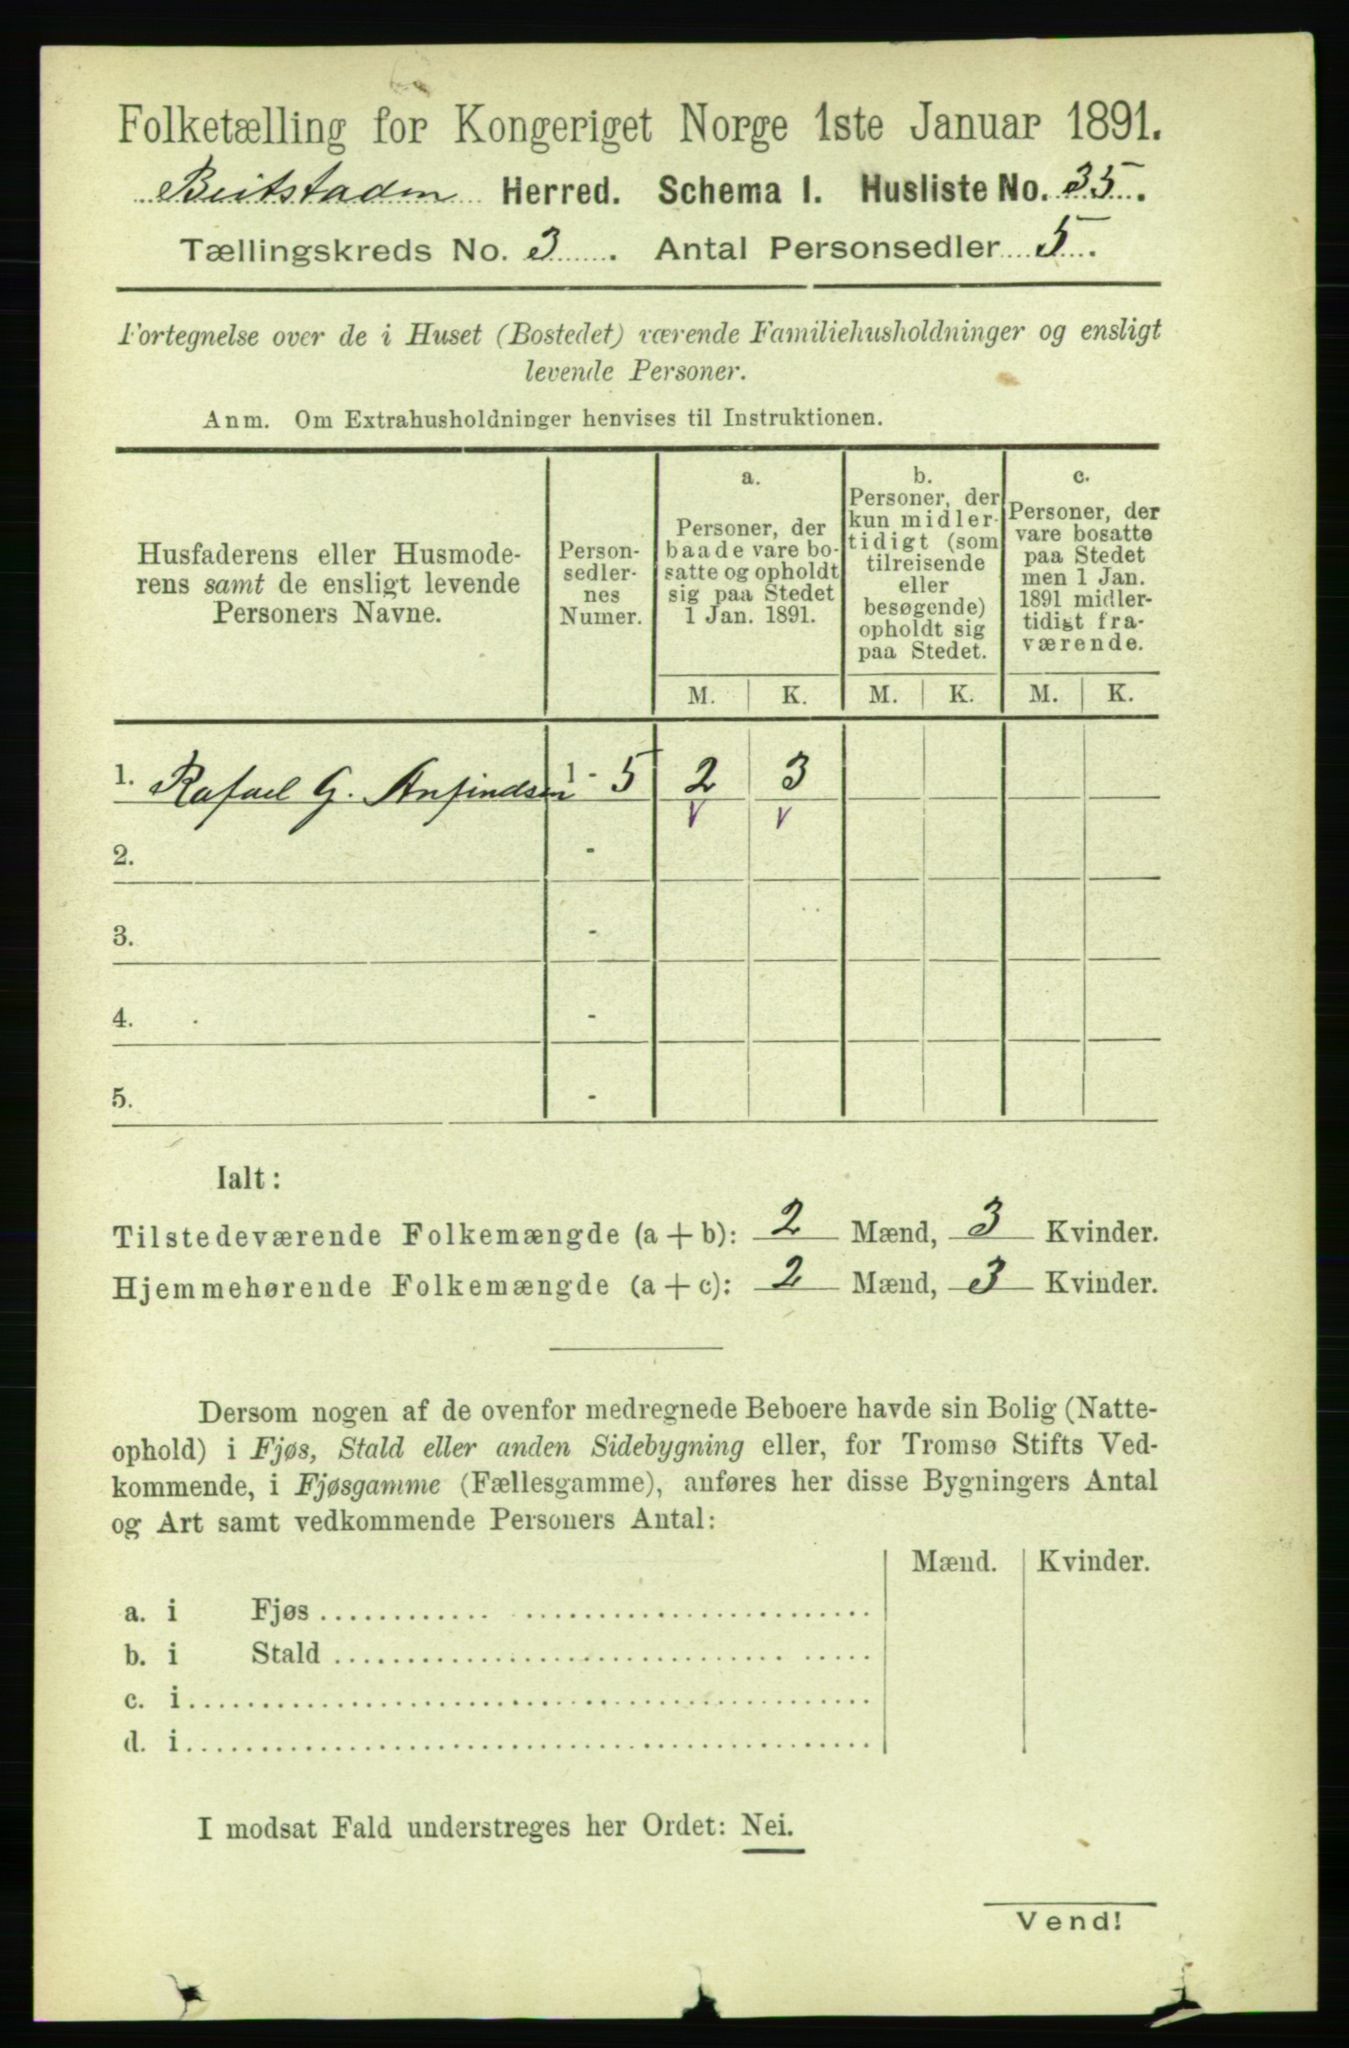 Folketælling for Kongeriget Norge 1ste Januar 1891.
Beitstaden Herred. Schema I. Husliste No. 35.
Tællingskreds No. 3. Antal Personsedler 5.
Fortegnelse over de i Huset (Bostedet) værende Familiehusholdninger og ensligt
levende Personer.
Anm. Om Extrahusholdninger henvises til Instruktionen.
Husfaderens eller Husmode-
rens samt de ensligt levende
Personers Navne.
Person-
sedler-
nes
Numer.
a.
Personer, der
baade vare bo-
satte og opholdt
sig paa Stedet
1 Jan. 1891.
b.
Personer, der
kun midler-
tidigt (som
tilreisende
eller
besøgende)
opholdt sig
paa Stedet.
c.
Personer, der
vare bosatte
paa Stedet
men 1 Jan.
1891 midler-
tidigt fra-
værende.
M. K. M. K. M. K.
1. Rafael G. Anfindsen 1 - 5 2 3
2. -
3. -
4. -
5. -
Ialt:
Tilstedeværende Folkemængde (a + b): 2 Mænd, 3 Kvinder.
Hjemmehørende Folkemængde (a + c): 2 Mænd, 3 Kvinder.
Dersom nogen af de ovenfor medregnede Beboere havde sin Bolig (Natte-
ophold) i Fjøs, Stald eller anden Sidebygning eller, for Tromsø Stifts Ved-
kommende, i Fjøsgamme (Fællesgamme), anføres her disse Bygningers Antal
og Art samt vedkommende Personers Antal:
Mænd. Kvinder.
a. i Fjøs
b. i Stald
c. i
d. i
I modsat Fald understreges her Ordet: Nei.
Vend!